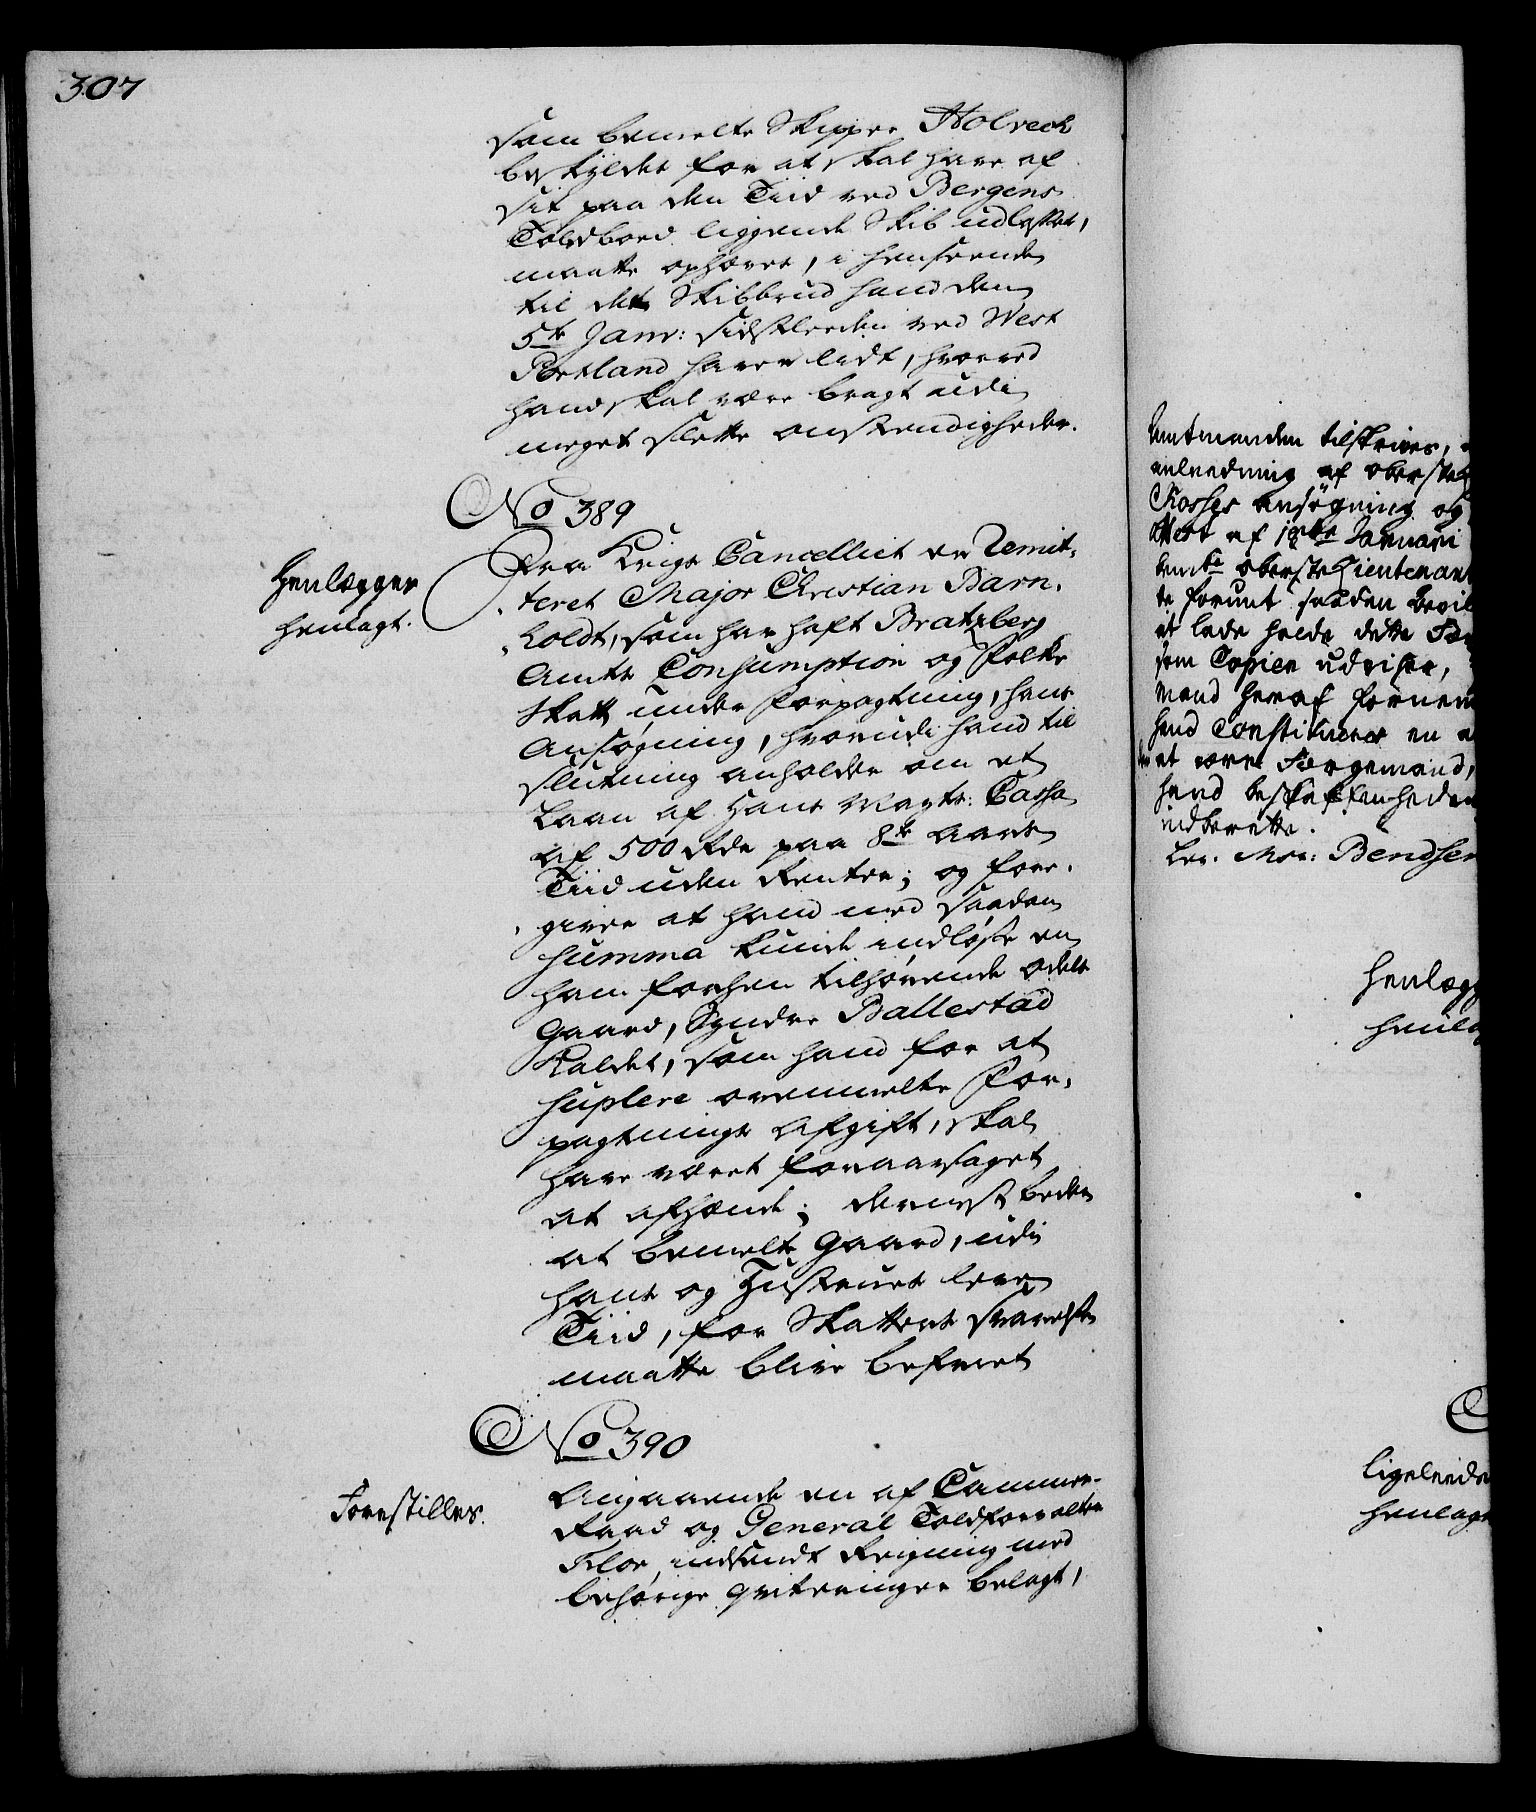 307
som bemelte Skipper Holbech
beskyldes for at skal have af
sit paa den Tiid ved Bergens
Toldboed liggende Skib udlosset,
maatte ophæves, i henseende
til det Skibbrud hand den
5te Janv: sidstleeden ved West
Portland haver lidt, hvorved
hand skal være bragt udi
meget slette omstendigheder.
No 389
Henlægges
henlagt.
Fra Krigs Cancelliet er remit-
teret Major Christian Barn-
holdt, som har haft Bratzberg
Amts Consumption og Folke
Skatt under Forpagtning, hans
Ansøgning, hvorudi hand til
slutning anholder om et
Laan af Hans Mayts: Cassa
af 500 Rdr paa 8te Aars
Tiid uden Renter; og fore-
giver at hand med saadan
Summa kunde indløse en
ham forhen tilhørende odels
Gaard, Syndre Ballestad
kaldet, som hand for at
suplere ovenmelte For-
pagtnings Afgift, skal
have været foraarsaget
at afhænde; dernest beder
at bemelte Gaard, udi
hans og Hustrues leve
Tiid, for Skatters svarelse
maatte blive befriet
No 390
Forestilles.
Angaaende en af Cammer-
Raad og General Toldforvalter
Flor, indsendt Regning med
behørige qviteringer belagt,
Amtmanden tilskrives,
anledning af oberste
Rosses ansøgning og
Attest af 18de Januarii
bemte oberste Lieutenant
te forunt saaden bevil
at lade holde dette
som Copien udviser,
mand heraf fornem
hand Constituerer en a
at være Færgemand,
hand beskaffenheden
indberette.
Lev. Msr: Bendsen
henlægg
henla
ligeleedes
henlagt